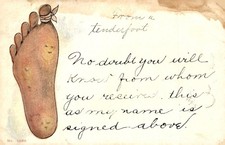 From a
tenderfoot
No doubt you will
know from whom
you receive this
as my name is
signed above.